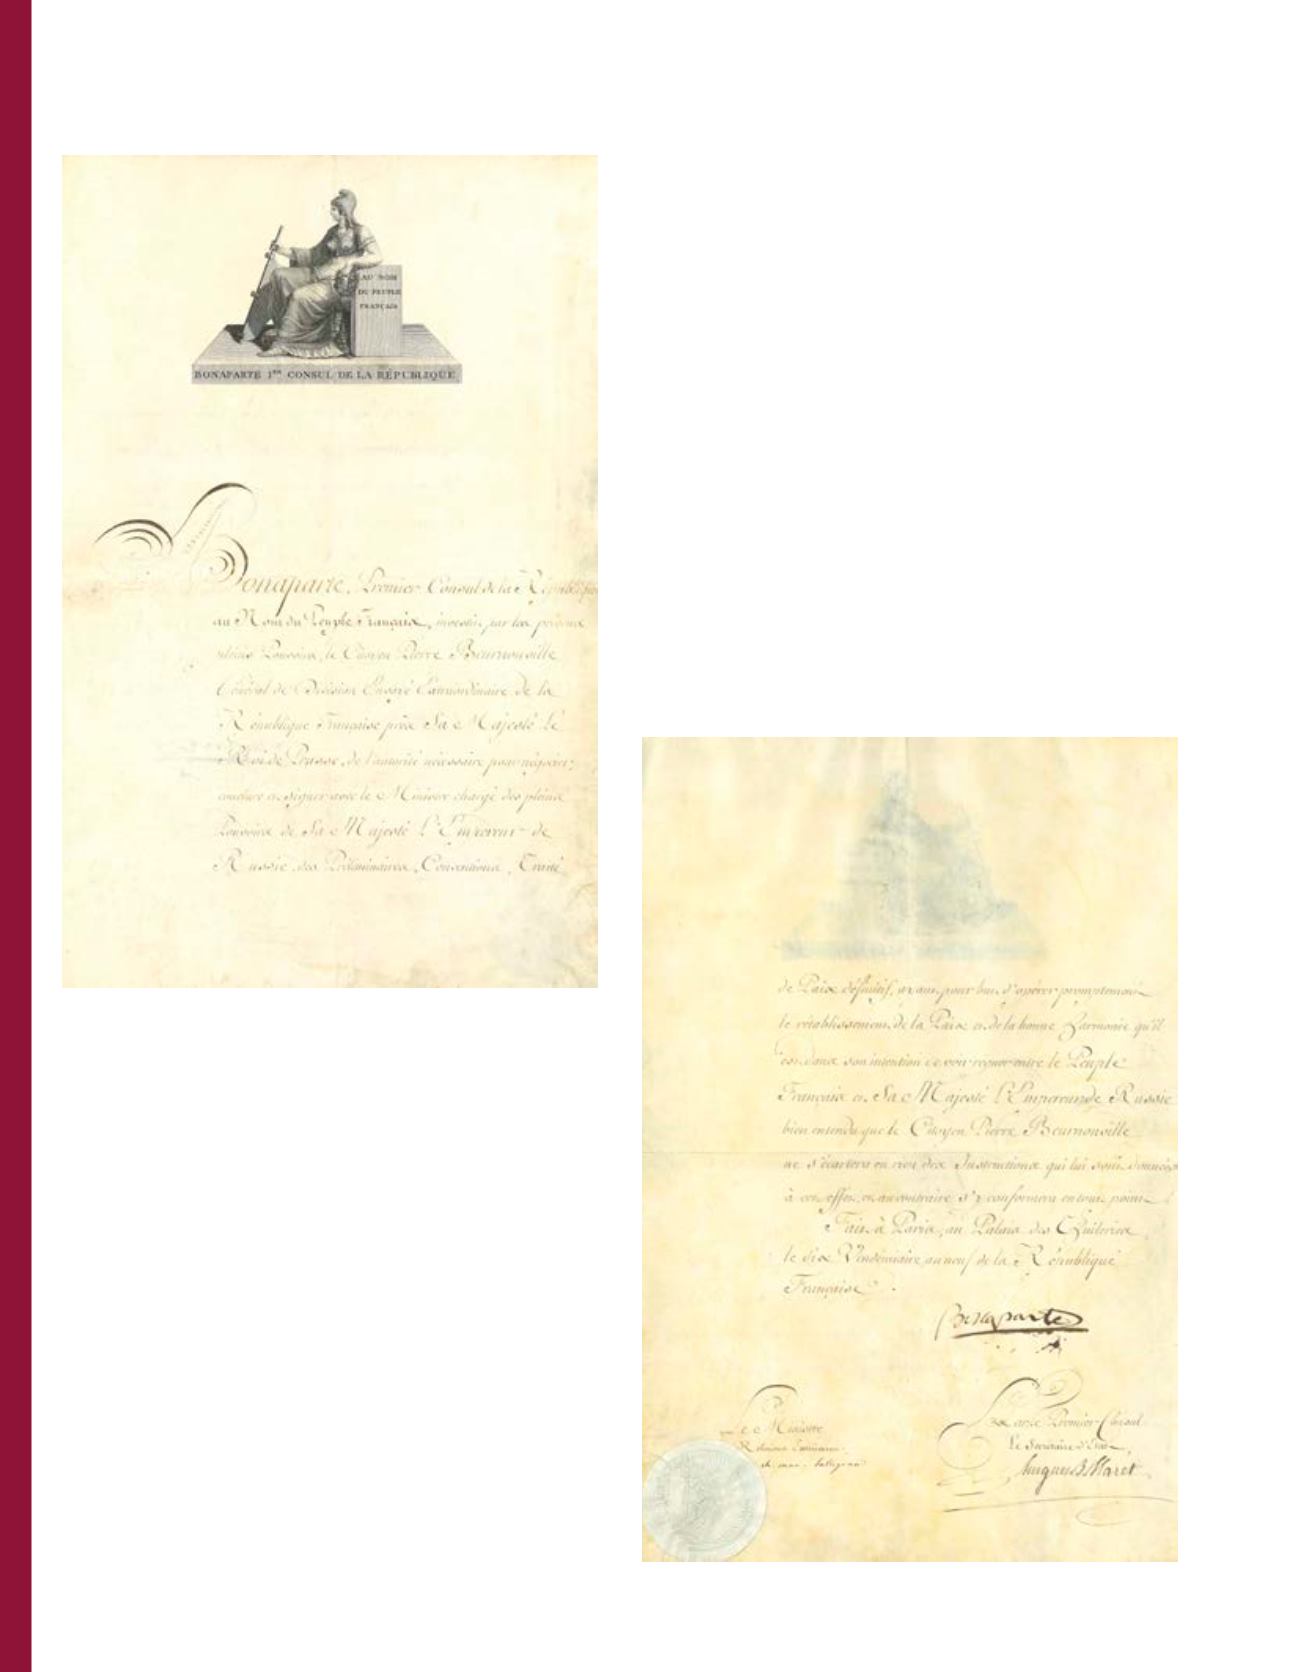 AU NOM
DU PEUPLE
FRANÇAIS
BONAPARTE 1ER CONSUL DE LA RÉPUBLIQUE
Bonaparte, Premier Consul de la République
au Nom du Peuple Français, investit par les présens
pleins Pouvoirs, le Citoyen Pierre Beurnonville
Général de Division Envoyé Extraordinaire de la
République Française près Sa Majesté Le
Roi de Prusse, de l'autorité nécessaire pour négocier,
conclure et signer avec le Ministre chargé des pleins
Pouvoirs de Sa Majesté L'Empereur de
Russie des Préliminaires, Conventions, Traité
de Paix définitif, ayant pour but d'opérer promptement
le rétablissement de la Paix et de la bonne Harmonie qu'il
est dans son intention de voir régner entre le Peuple
Français et Sa Majesté L'Empereur de Russie
bien entendu que le Citoyen Pierre Beurnonville
ne s'écartera en rien des Instructions qui lui sont données
à cet effet, et au contraire s'y conformera en tout point.
Fait à Paris, au Palais des Thuileries,
le six Vendémiaire an neuf de la République
Française.
Bonaparte
Le Ministre
Relations Extérieures
ch. mau. talleyrand
Par le Premier Consul
Le Secrétaire d'Etat,
Hugues B. Maret